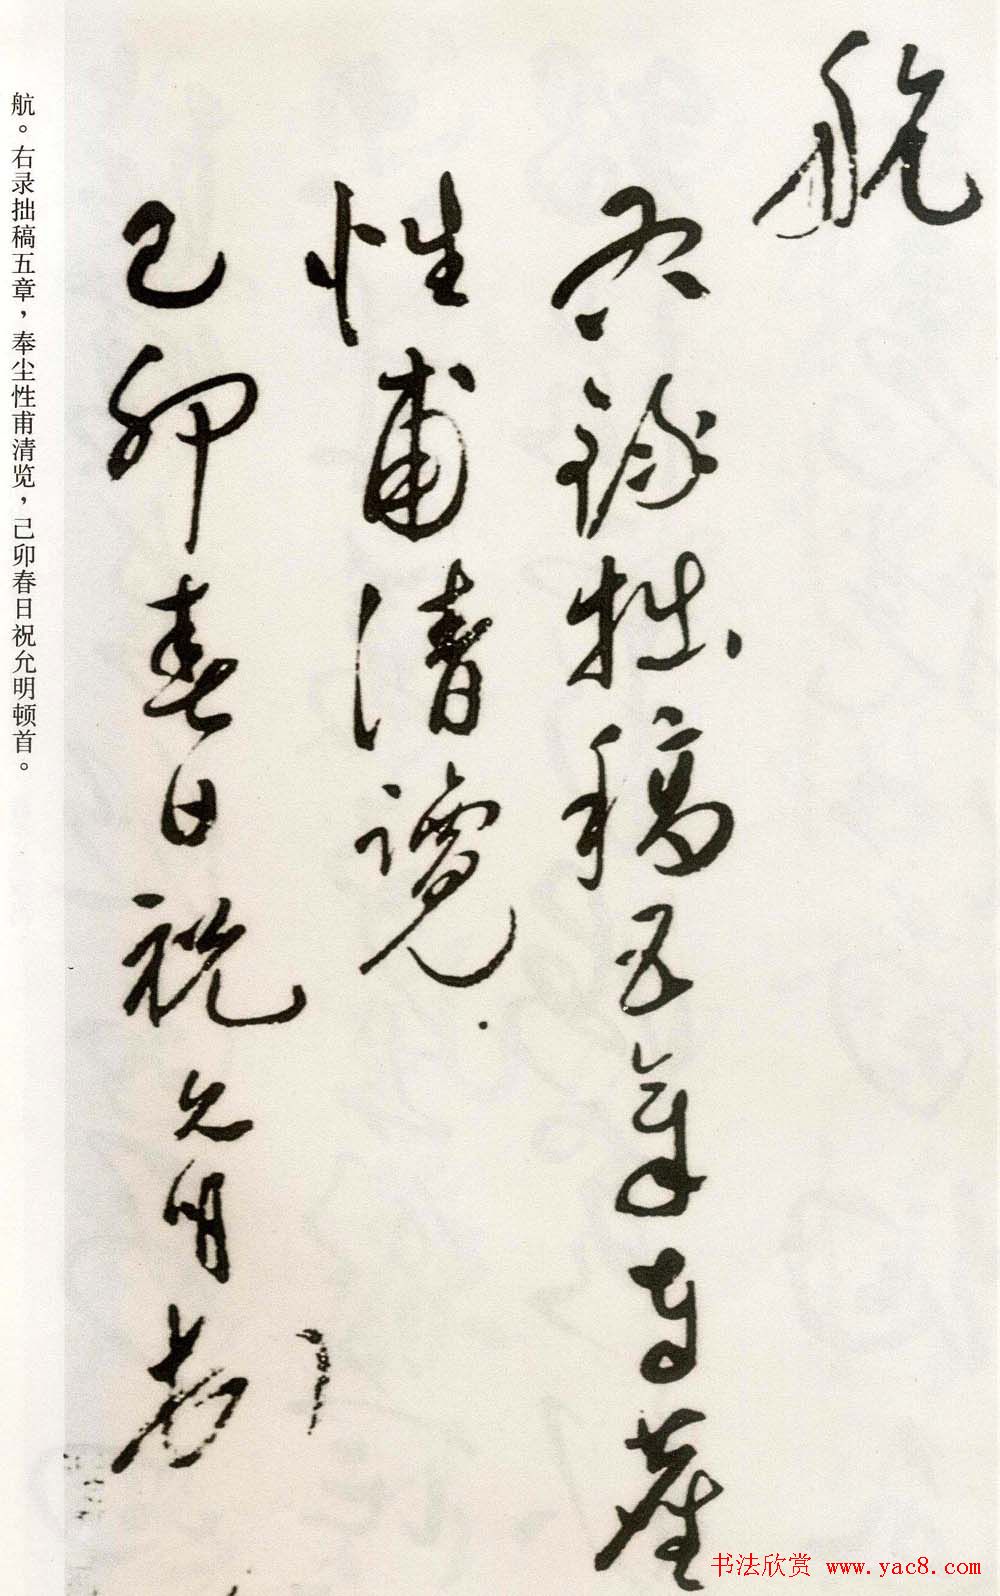 航
右錄拙稿五章奉塵
性甫清覽
己卯春日祝允明頓首
航。右录拙稿五章，奉尘性甫清览，己卯春日祝允明顿首。
书法欣赏 www.yac8.com